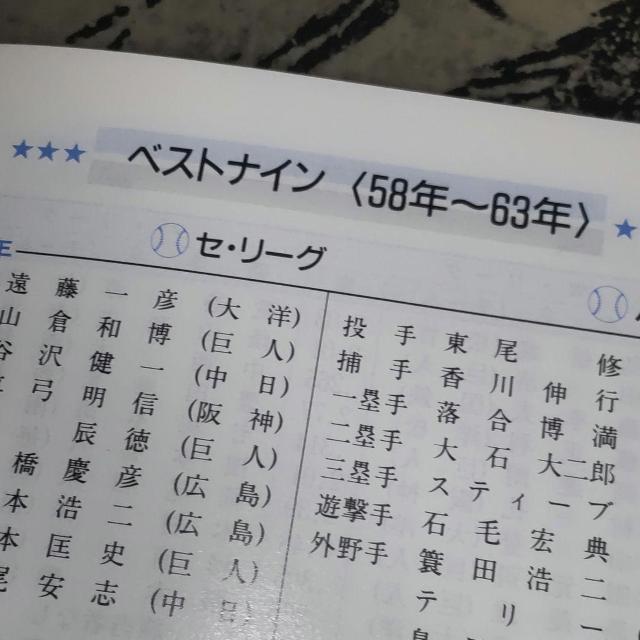 ★★★ ベストナイン〈58年〜63年〉 ★
セ・リーグ
遠藤一彦(大洋)
山倉和博(巨人)
谷沢健一(中日)
弓明信(阪神)
辰徳(巨人)
橋慶彦(広島)
本浩二(広島)
本匡史(巨人)
尾安志(中日
投手 東尾修
捕手 香川伸行
一塁手 落合博満
二塁手 大石大二郎
三塁手 スティーブ
遊撃手 石毛宏典
外野手 簑田浩二
テリー
島